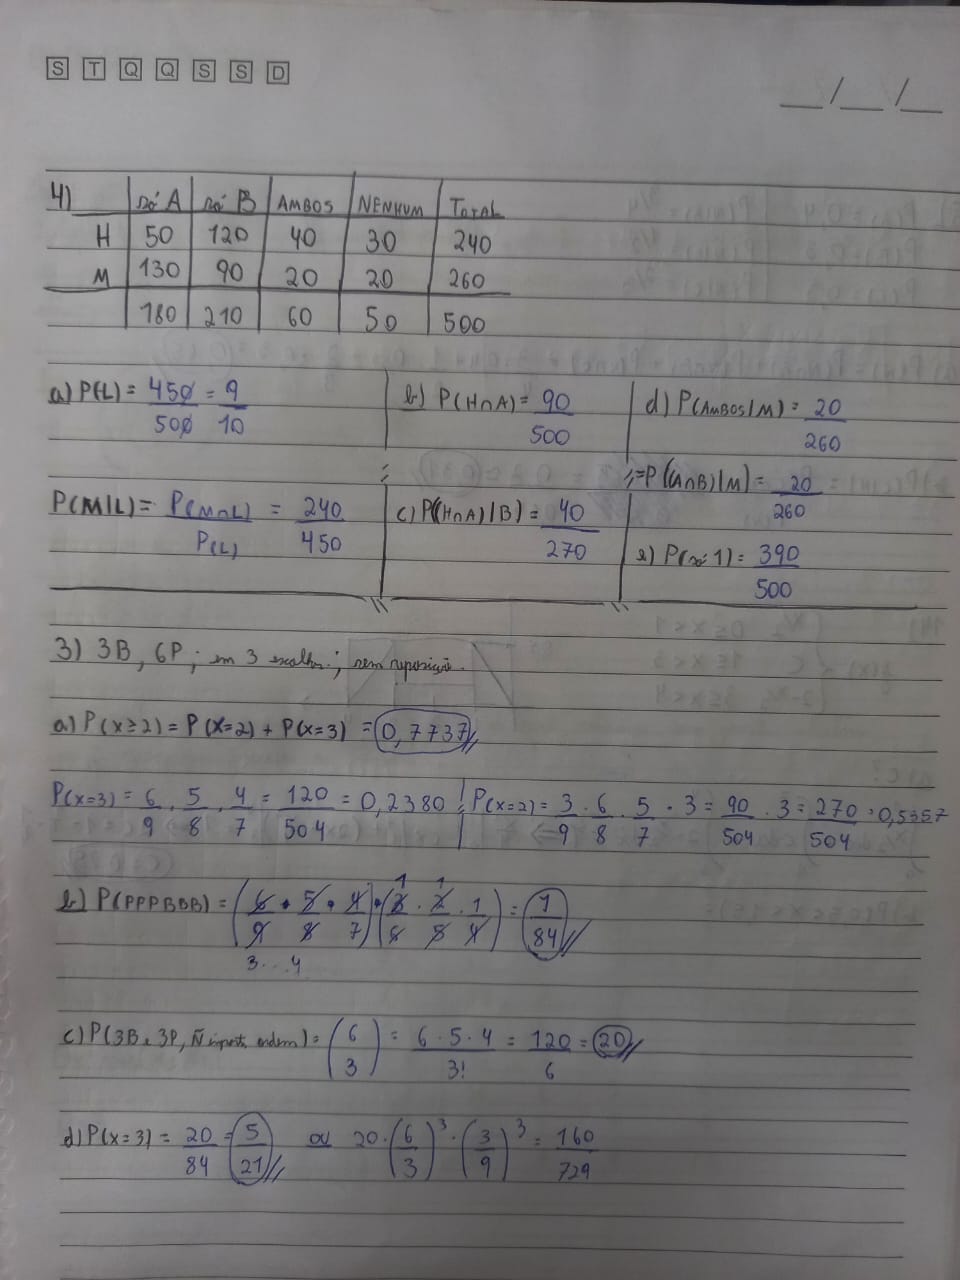 S T Q Q S S D
__/__/__
4) Só A Só B AMBOS NENHUM TOTAL
H 50 120 40 30 240
M 130 90 20 20 260
180 210 60 50 500
a) P(L) = 450/500 = 9/10
P(M|L) = P(M∩L)/P(L) = 240/450
b) P(H∩A) = 90/500
c) P((H∩A)|B) = 40/270
d) P(AMBOS|M) = 20/260
= P((A∩B)|M) = 20/260
e) P(só 1) = 390/500
3) 3B, 6P; em 3 escolhas.; sem reposição.
a) P(x≥2) = P(x=2) + P(x=3) = 0,7737
P(x=3) = 6/9 . 5/8 . 4/7 = 120/504 = 0,2380 ; P(x=2) = 3/9 . 6/8 . 5/7 . 3 = 90/504 . 3 = 270/504 = 0,5357
b) P(PPPBBB) = (6/9 . 5/8 . 4/7) . (3/6 . 2/5 . 1/4) = 1/84
3...4
c) P(3B e 3P, Ñ import. ordem) = (6 3) = 6 . 5 . 4/3! = 120/6 = 20
d) P(x=3) = 20/84 = 5/21 ou 20 . (6/3)³ . (3/9)³ = 160/729